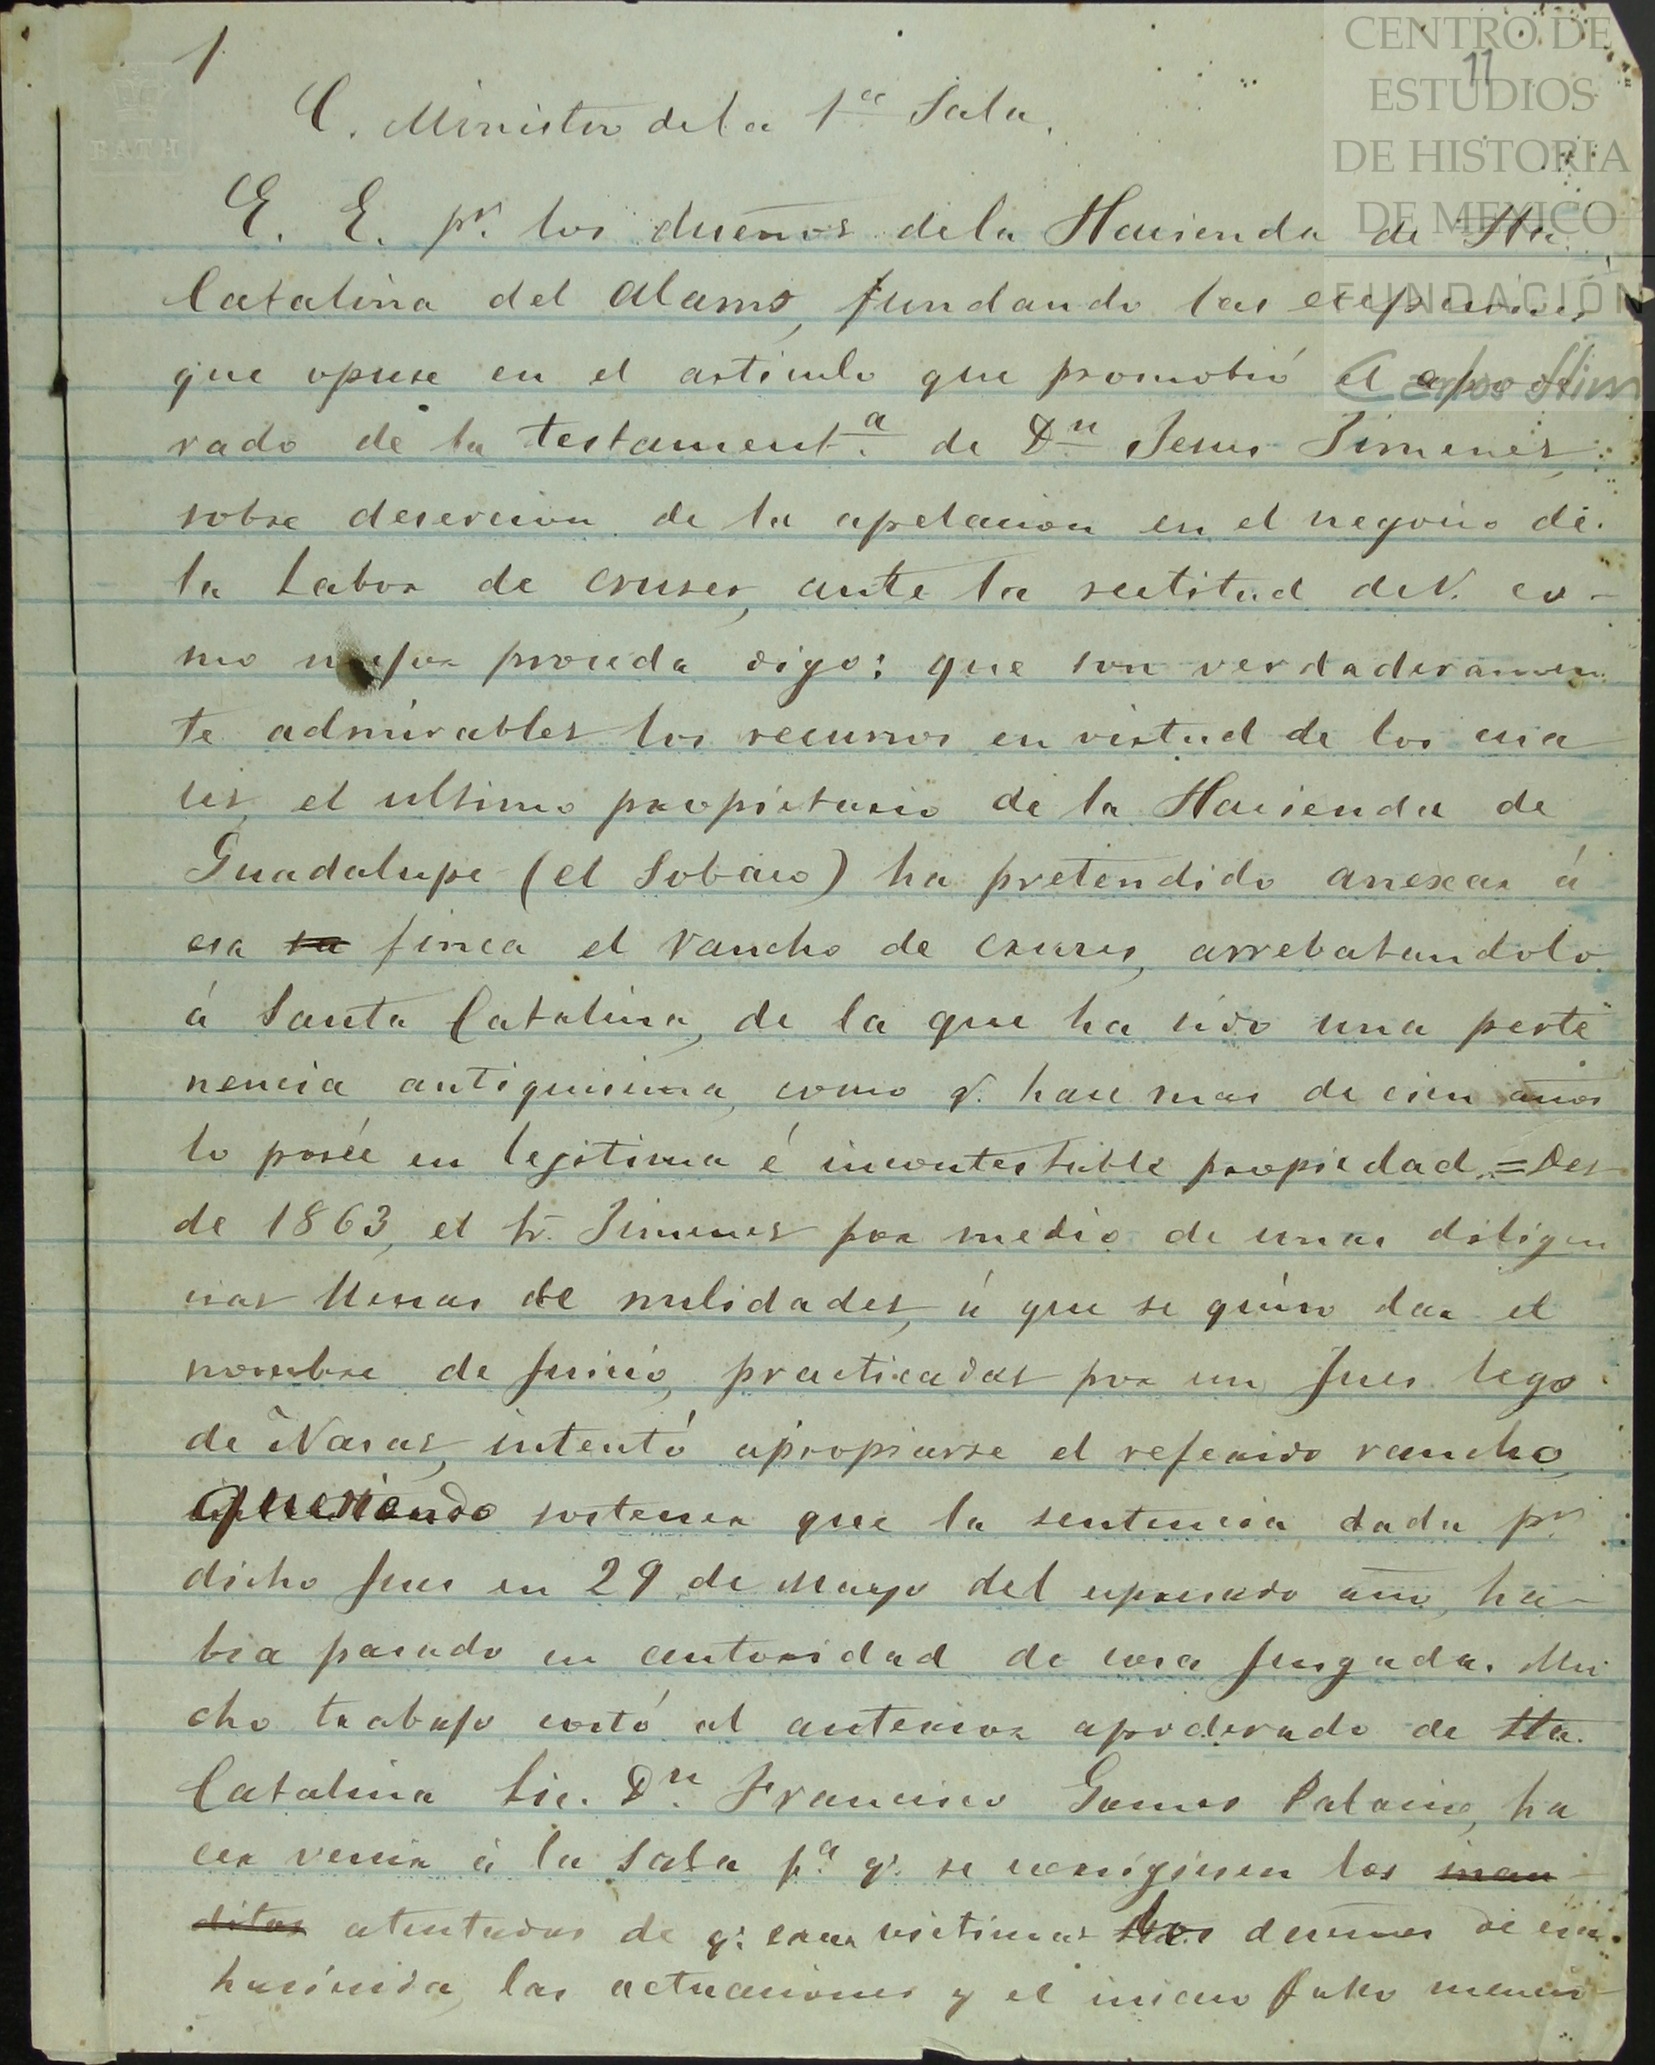 1
11
CENTRO DE
ESTUDIOS
DE HISTORIA
DE MEXICO
FUNDACIÓN
Carlos Slim
BATH
C. Ministro de la 1ª Sala.
E. E. pr. los dueños de la Hacienda de Sta.
Catalina del Alamo, fundando las ecepciones
que opuse en el articulo que promobió el apode
rado de la testament.ª de Dn Jesus Jimenes,
sobre desercion de la apelacion en el negocio de
la Labor de Cruses, ante la rectitud de V. co-
mo mejor proceda digo: que son verdaderamen
te admirables los recursos en virtud de los cua
les, el ultimo propietario de la Hacienda de
Guadalupe (el Sobaco) ha pretendido anexar á
esa su finca el rancho de Cruses, arrebatandolo
á Santa Catalina, de la que ha sido una perte
nencia antiquisima, como q. hace mas de cien años
lo posée en legitima é incontestable propiedad.=Des
de 1863, el Sr. Jimenes por medio de unas diligen
cias llenas de nulidades, á que se quiso dar el
nombre de juicio, practicadas por un Jues lego
de Nasas, intentó apropiarse el referido rancho,
queriendo sostener que la sentencia dada pr.
dicho Jues en 29 de Mayo del espresado año, ha-
bia pasado en autoridad de cosa jusgada. Mu
cho trabajo costó al anterior apoderado de Sta.
Catalina Lic. Dn. Francisco Gomes Palacio, ha
cer venir á la Sala p.ª q. se corrigiesen los inau
ditos atentados de q. eran victimas los dueños de esa
hacienda, las actuaciones y el inicuo fallo mencio